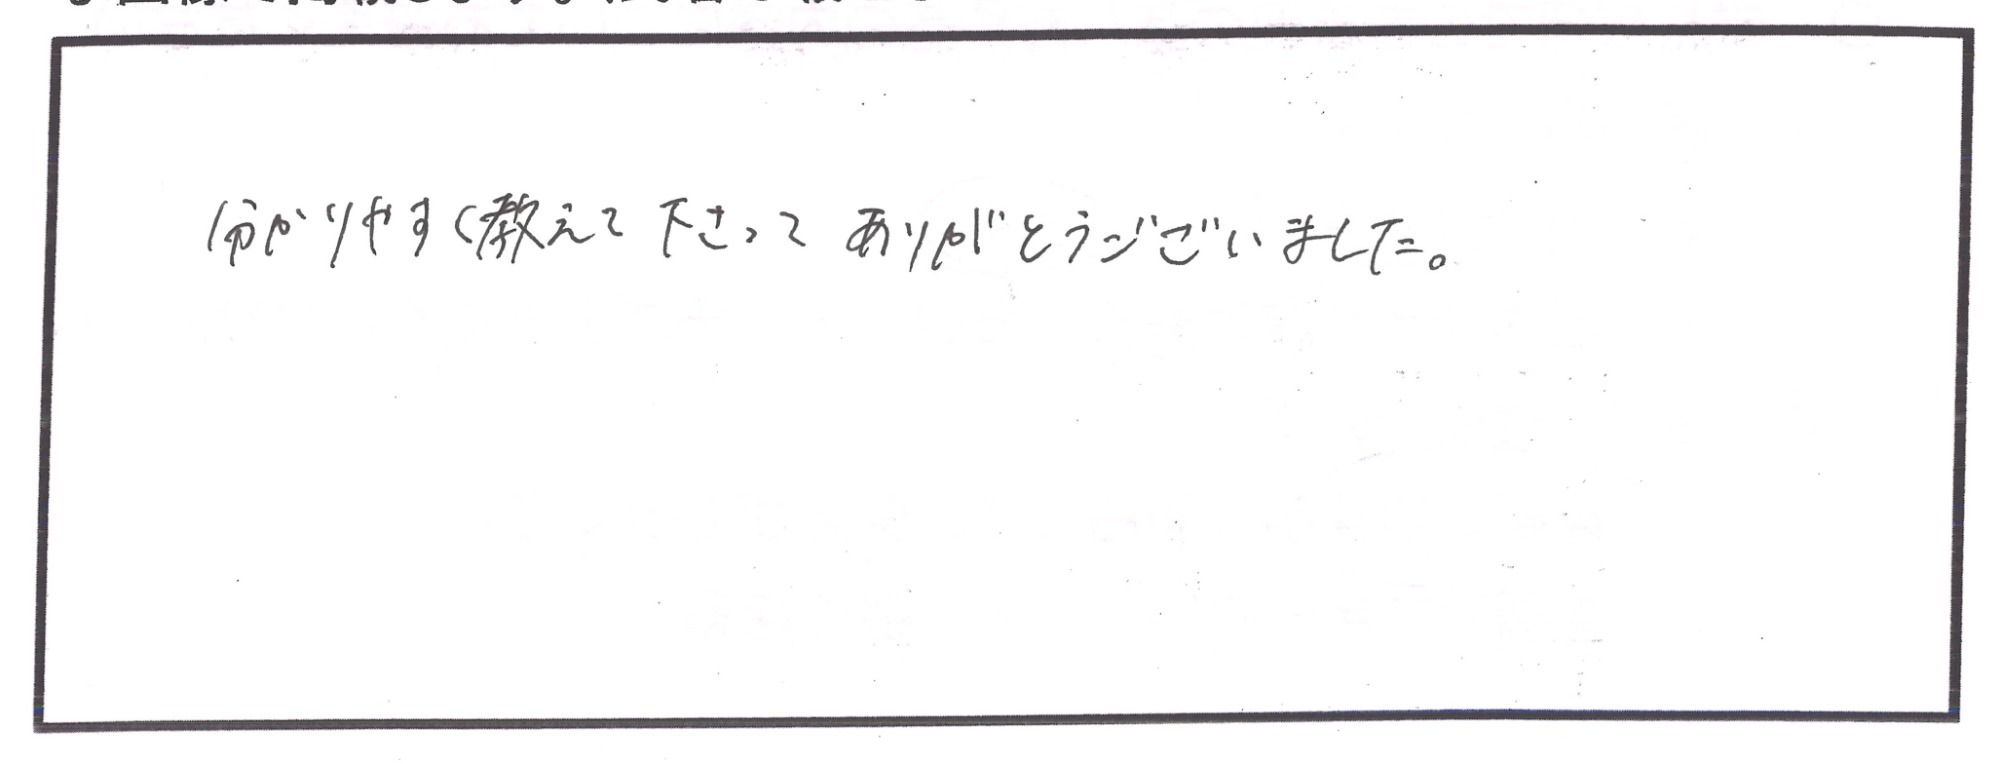 分かりやすく教えて下さって ありがとうございました。